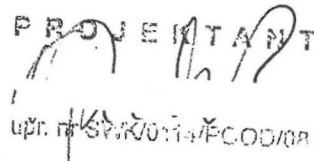 PROJEKTANT
upr. nr SWK/0114/POOD/08